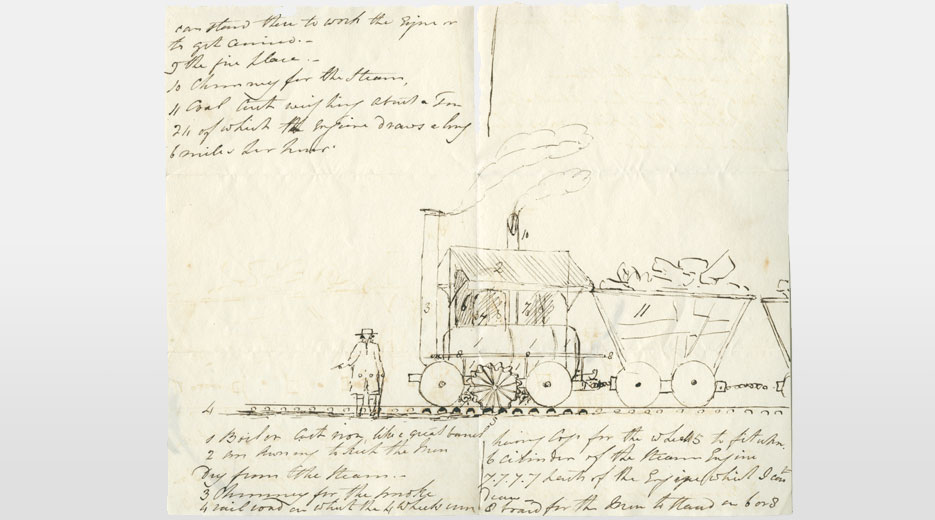 can stand there to work the Engine or
to get
9 the fire place.-
10 Chimney for the Steam,
11 Coal Cart weighing about a Ton
24 of which the Engine draws along
6 miles per hour.
10
2
3
6
7
11
8
8
8
4
1 Boiler Cast iron, like a great barrel
2 an Awning to the Men
Dry from the Steam.-
3 Chimney for the smoke
4 rail road on which the 4 Wheels run
having Cogs for the wheel 5 to fit
6 cilinder of the Steam Engine
7.7.7.7 parts of the Engine which I cant
Draw
8 board for the Men to Stand on 6 or 8